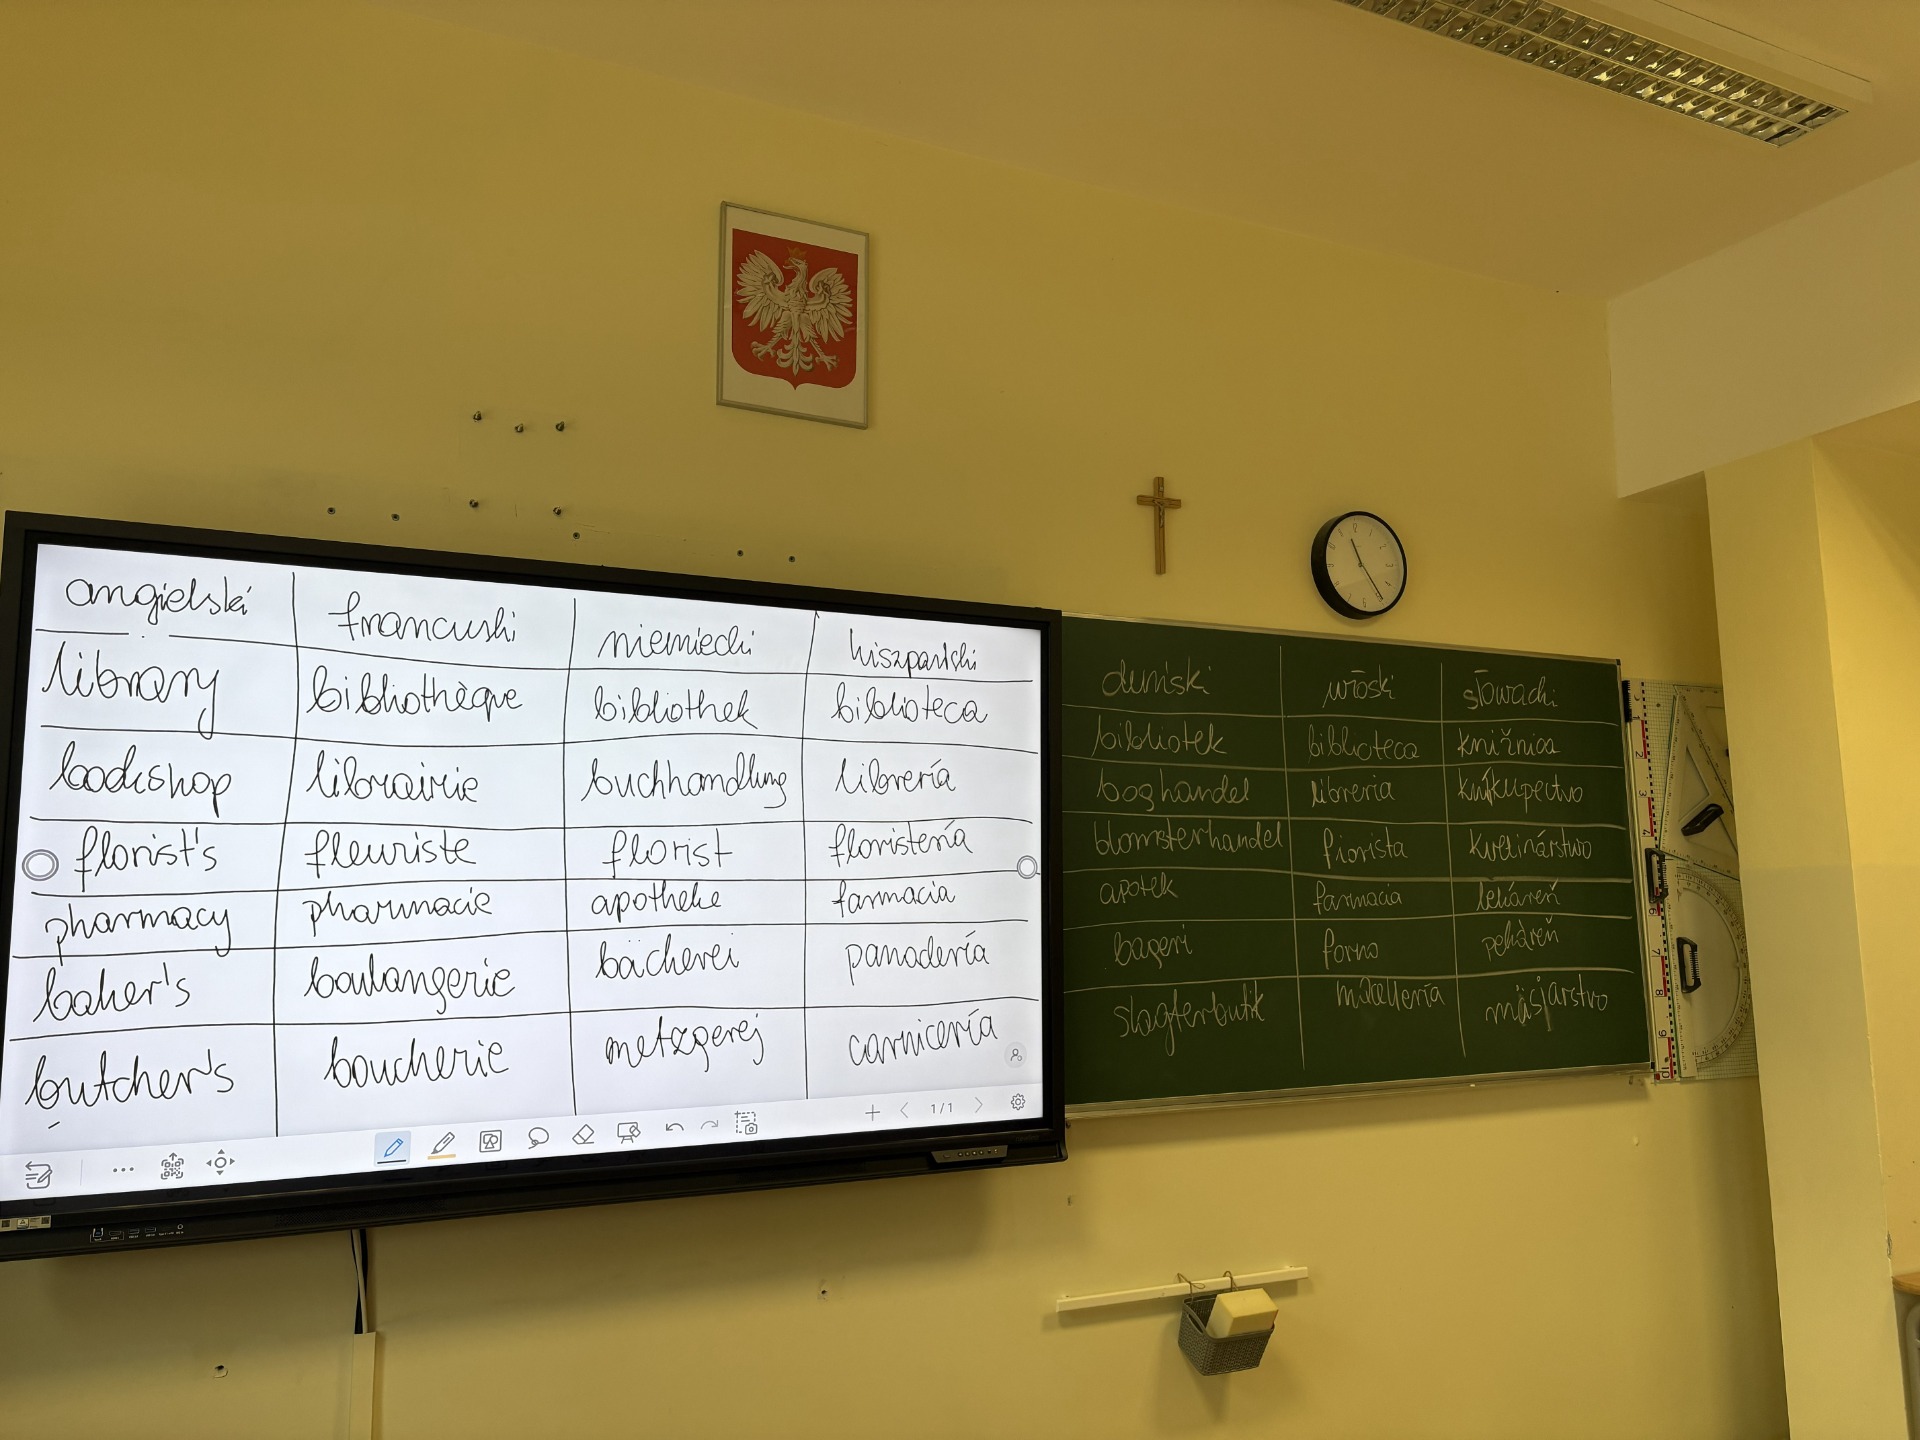 angielski francuski niemiecki hiszpański
library bibliothèque bibliothek biblioteca
bookshop librairie buchhandlung librería
florist's fleuriste florist floristería
pharmacy pharmacie apotheke farmacia
baker's boulangerie bächerei panadería
butcher's boucherie metzgerej carnicería
1/1
duński włoski słowacki
bibliotek biblioteca knižnica
boghandel libreria kníkupectvo
blomsterhandel fiorista kvetinárstvo
apotek farmacia lekáreň
bageri forno pekáreň
slagterbutik macelleria mäsiarstvo